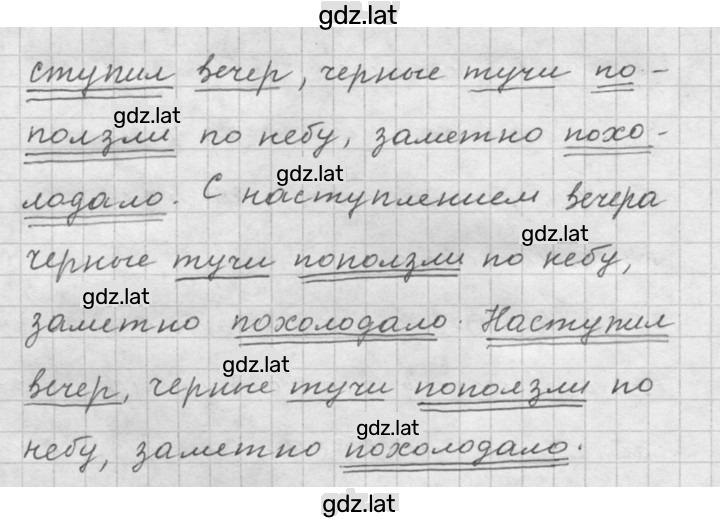 gdz.lat
ступил вечер, черные тучи по-
gdz.lat
ползли по небу, заметно похо-
gdz.lat
лодало. С наступлением вечера
gdz.lat
черные тучи поползли по небу,
gdz.lat
заметно похолодало. Наступил
gdz.lat
вечер, черные тучи поползли по
gdz.lat
небу, заметно похолодало.
gdz.lat